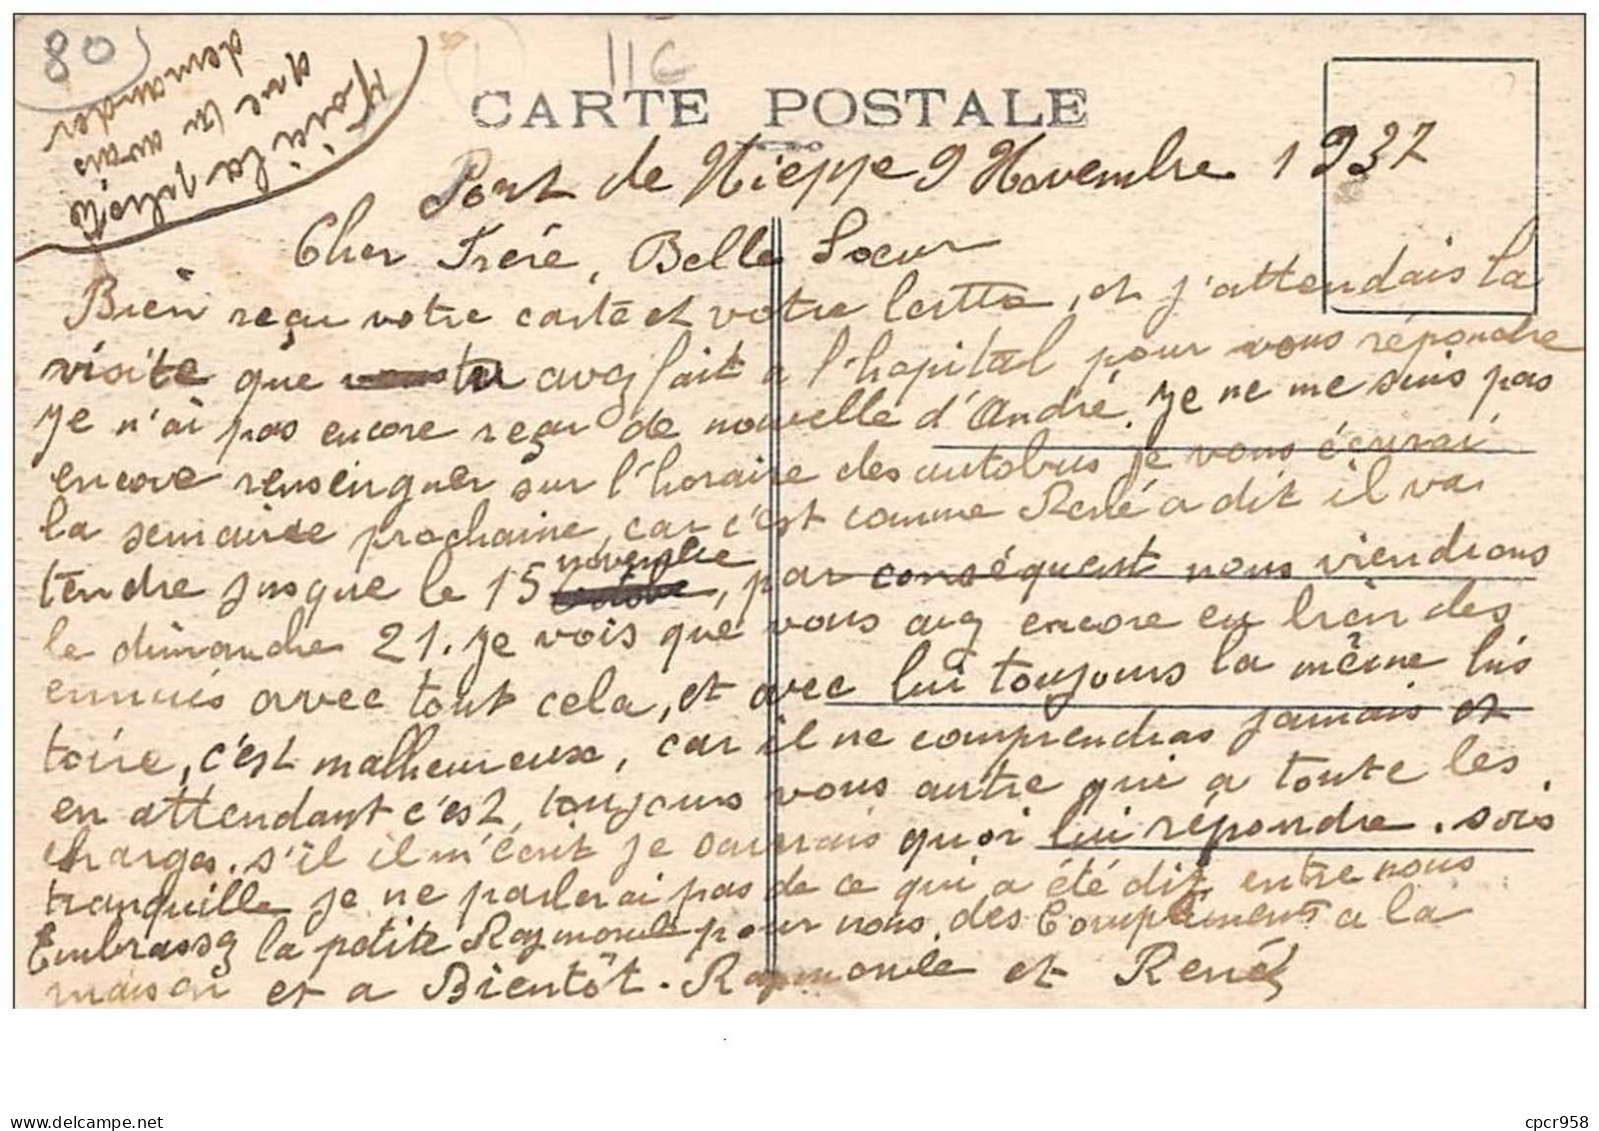 80
11C
Voici la photo
que tu avais
demander
CARTE POSTALE
Pont de Nieppe 9 Novembre 1937
Cher Frére, Belle Soeur
Bien reçu votre carte et votre lettre, et j'attendais la
visite que vous tu avez fait a l'hopital pour vous répondre
Je n'ai pas encore reçu de nouvelle d'André. Je ne me suis pas
encore renseigner sur l'horaire des autobus je vous écrirai
la semaine prochaine, car c'est comme René a dit il va
tendre jusque le 15 novembre octobre, par conséquent nous viendrons
le dimanche 21. Je vois que vous avez encore eu bien des
ennuis avec tout cela, et avec lui toujours la même his
toire, c'est malheureux, car il ne comprendras jamais et
en attendant c'est toujours vous autre qui a toute les
charges. s'il il m'écrit je saurais quoi lui répondre. sois
tranquille je ne parlerai pas de ce qui a été dit entre nous
Embrassez la petite Raymonde pour nous, des Compliments a la
maison et a Bientôt. Raymonde et René
www.delcampe.net
cpcr958